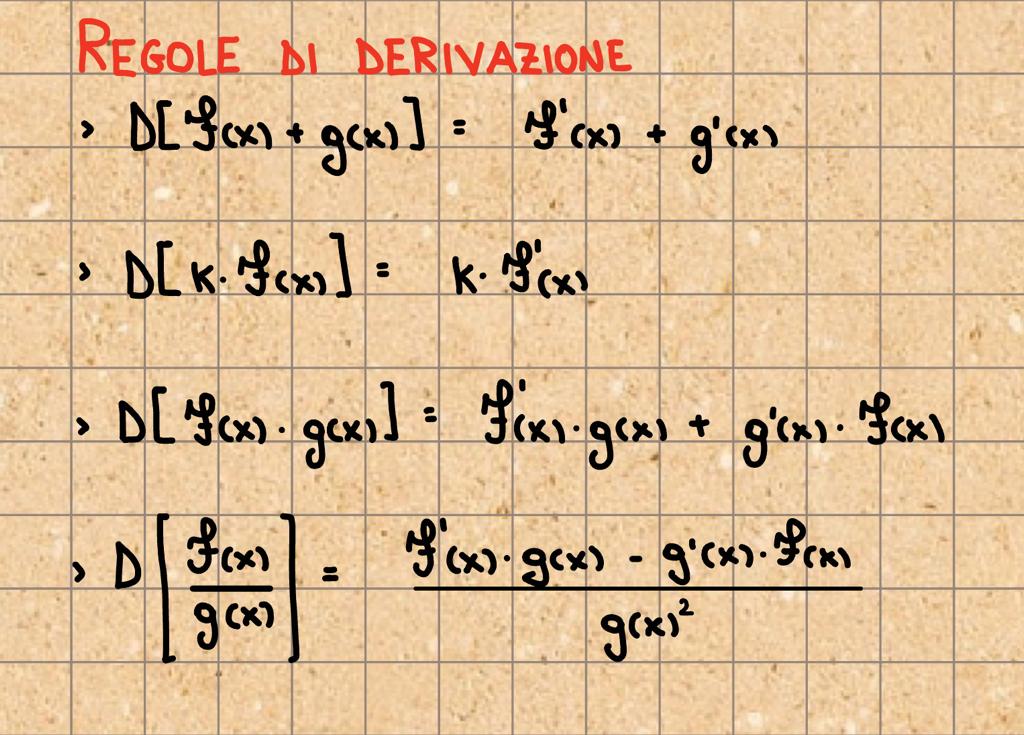 REGOLE DI DERIVAZIONE
> D[f(x) + g(x)] = f'(x) + g'(x)
> D[k · f(x)] = k · f'(x)
> D[f(x) · g(x)] = f'(x) · g(x) + g'(x) · f(x)
> D[f(x)/g(x)] = f'(x) · g(x) - g'(x) · f(x) / g(x)²